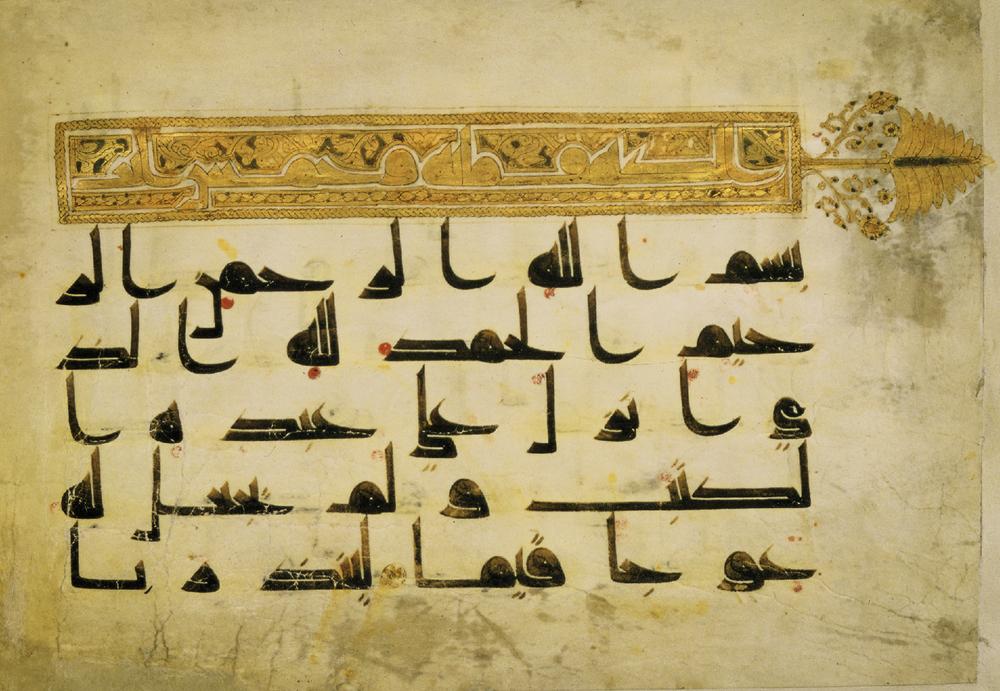 بسم الله الرحمن الر
حيم الحمد لله الذ
ي أنزل على عبده ا
لكتب ولم يجعل له
عوجا قيما لينذر با